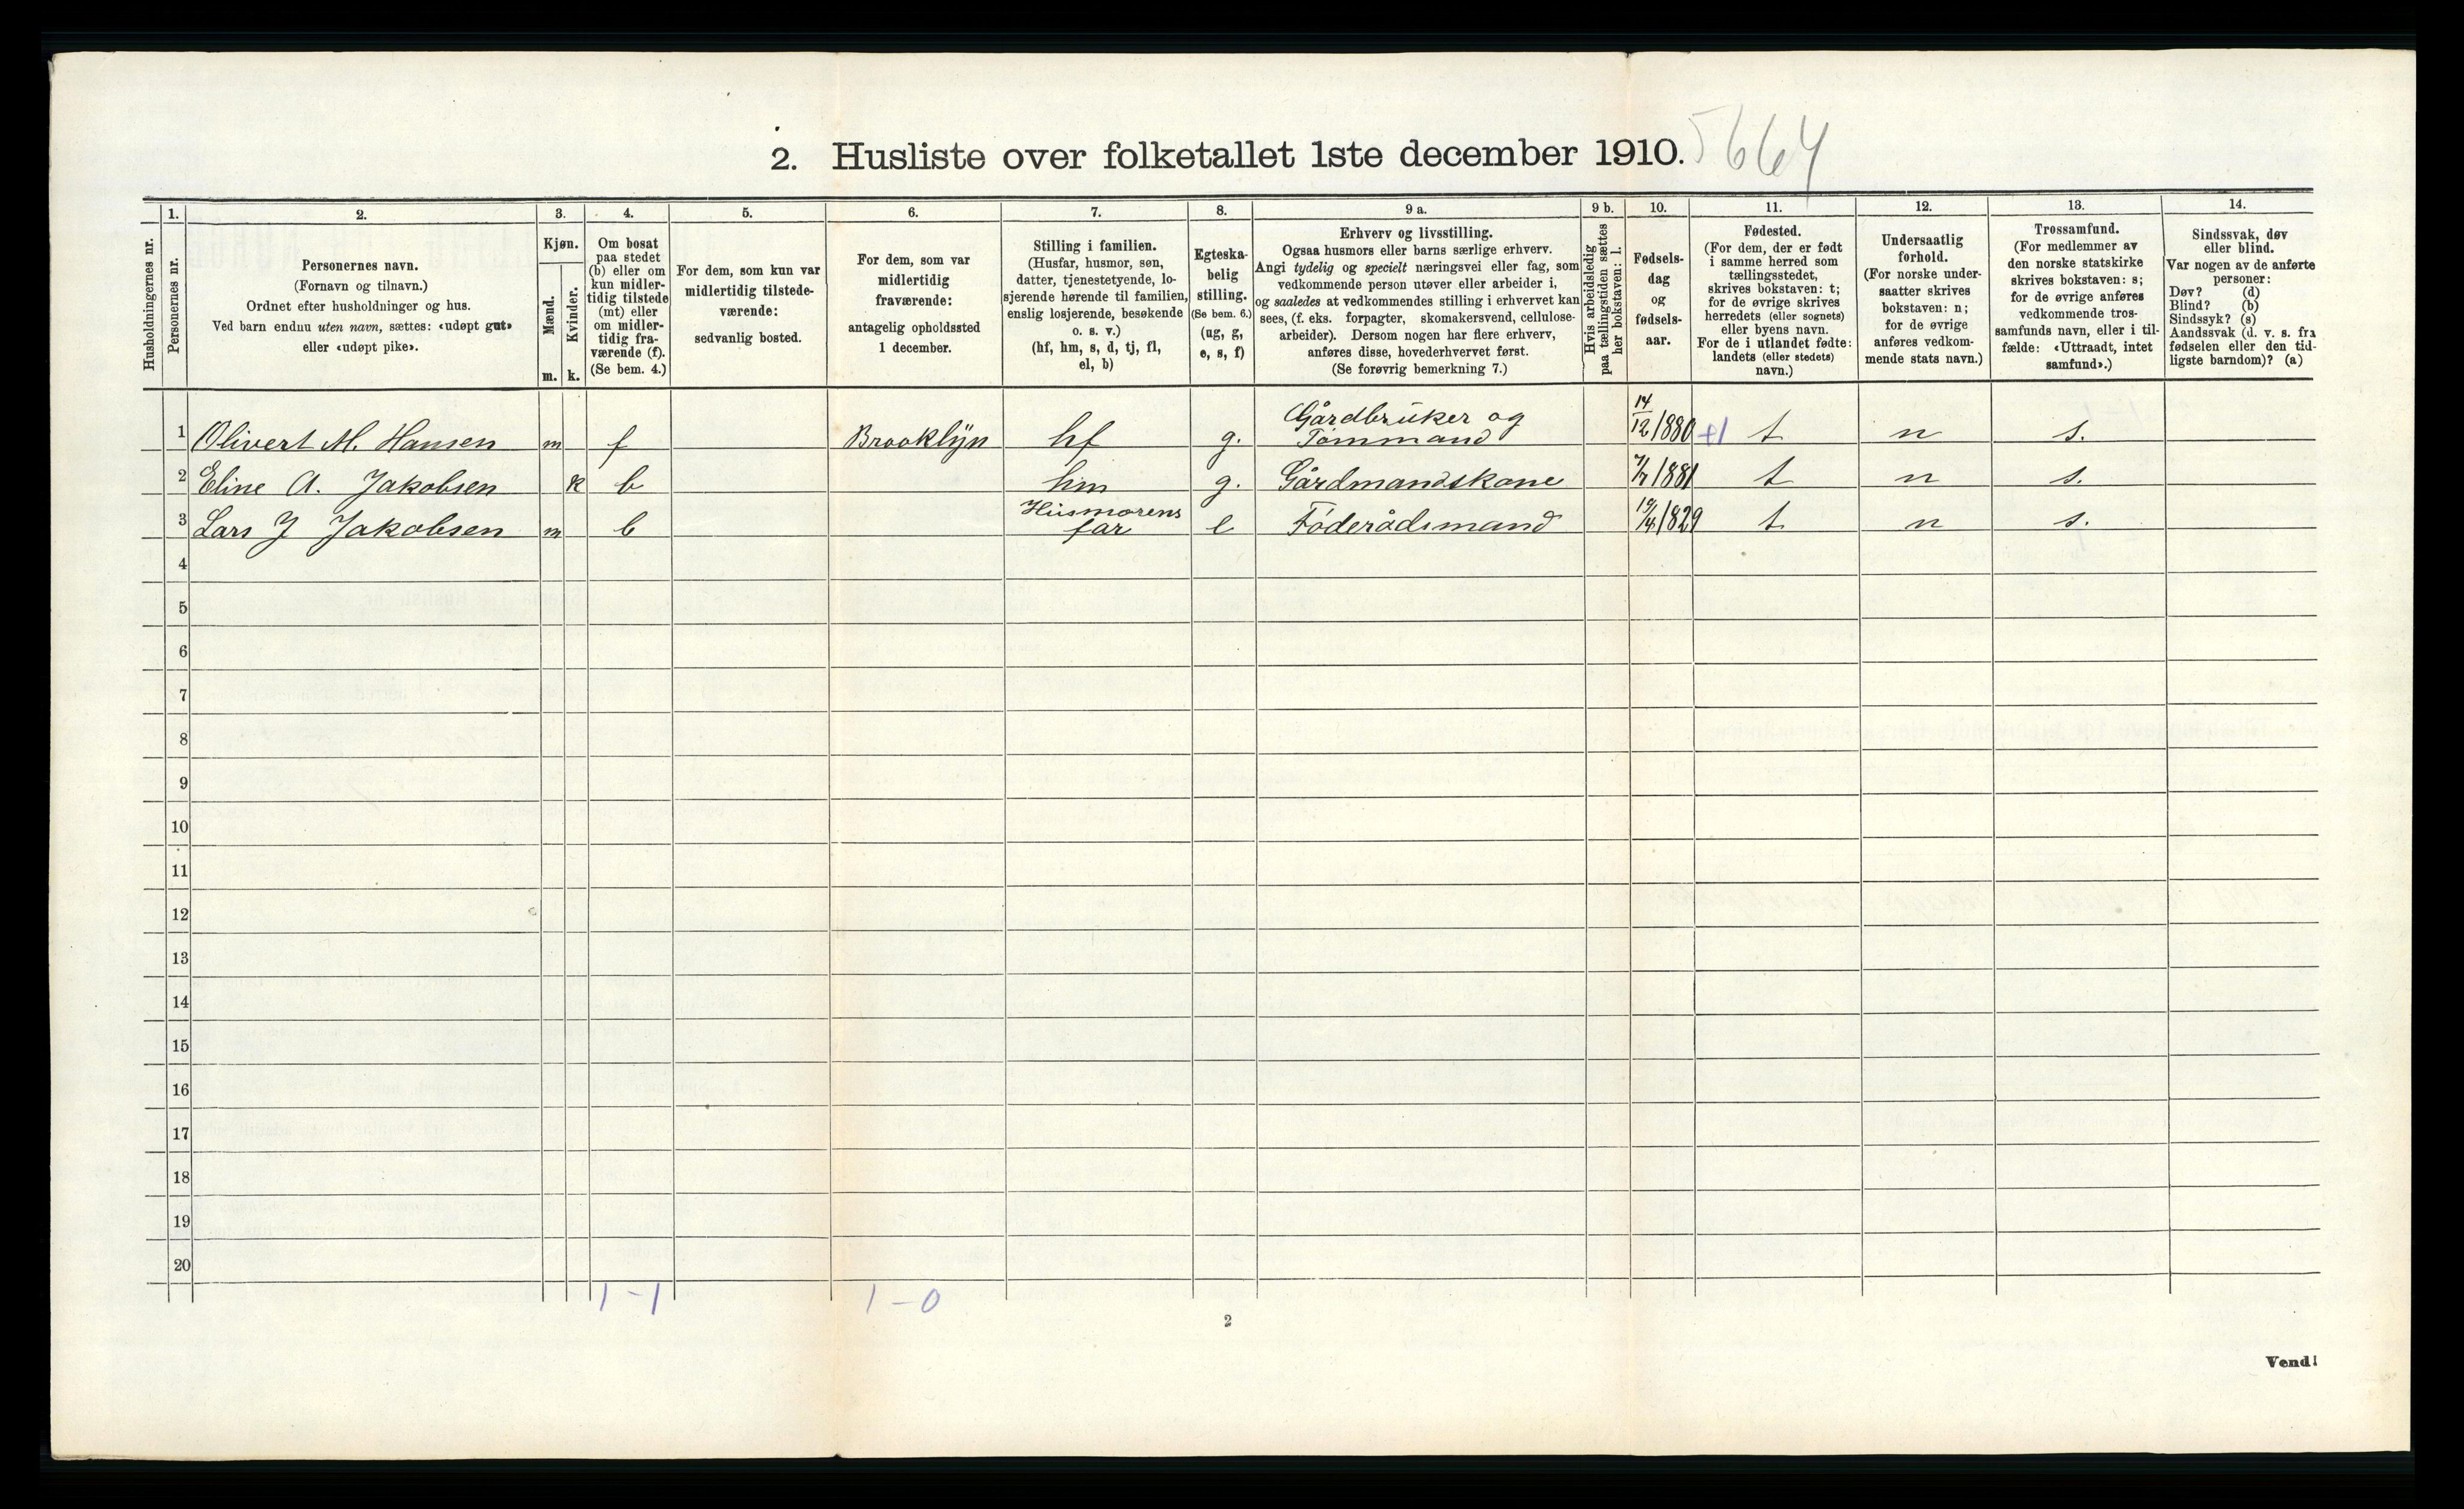 2. Husliste over folketallet 1ste december 1910. 5664
1. 2. 3. 4. 5. 6. 7. 8. 9 a. 9 b. 10. 11. 12. 13. 14.
Husholdningernes nr.
Personernes nr.
Personernes navn.
(Fornavn og tilnavn.)
Ordnet efter husholdninger og hus.
Ved barn endnu uten navn, sættes: «udøpt gut»
eller «udøpt pike».
Kjøn.
Mænd.
Kvinder.
m. k.
Om bosat
paa stedet
(b) eller om
kun midler-
tidig tilstede
(mt) eller
om midler-
tidig fra-
værende (f).
(Se bem. 4.)
For dem, som kun var
midlertidig tilstede-
værende:
sedvanlig bosted.
For dem, som var
midlertidig
fraværende:
antagelig opholdssted
1 december.
Stilling i familien.
(Husfar, husmor, søn,
datter, tjenestetyende, lo-
sjerende hørende til familien,
enslig losjerende, besøkende
o. s. v.)
(hf, hm, s, d, tj, fl,
el, b)
Egteska-
belig
stilling.
(Se bem. 6.)
(ug, g,
e, s, f)
Erhverv og livsstilling.
Ogsaa husmors eller barns særlige erhverv.
Angi tydelig og specielt næringsvei eller fag, som
vedkommende person utøver eller arbeider i,
og saaledes at vedkommendes stilling i erhvervet kan
sees, (f. eks. forpagter, skomakersvend, cellulose-
arbeider). Dersom nogen har flere erhverv,
anføres disse, hovederhvervet først.
(Se forøvrig bemerkning 7.)
Hvis arbeidsledig
paa tællingstiden sættes
her bokstaven: l.
Fødsels-
dag
og
fødsels-
aar.
Fødested.
(For dem, der er født
i samme herred som
tællingsstedet,
skrives bokstaven: t;
for de øvrige skrives
herredets (eller sognets)
eller byens navn.
For de i utlandet fødte:
landets (eller stedets)
navn.)
Undersaatlig
forhold.
(For norske under-
saatter skrives
bokstaven: n;
for de øvrige
anføres vedkom-
mende stats navn.)
Trossamfund.
(For medlemmer av
den norske statskirke
skrives bokstaven: s;
for de øvrige anføres
vedkommende tros-
samfunds navn, eller i til-
fælde: «Uttraadt, intet
samfund».)
Sindssvak, døv
eller blind.
Var nogen av de anførte
personer:
Døv? (d)
Blind? (b)
Sindssyk? (s)
Aandssvak (d. v. s. fra
fødselen eller den tid-
ligste barndom)? (a)
1 Olivert M. Hansen m f Brooklyn hf g. Gårdbruker og
Tømmand 14/12 1880 +1 t n s.
2 Eline A. Jakobsen k b hm g. Gårdmandskone 7/7 1881 t n s.
3 Lars J Jakobsen m b Husmorens
far e Föderådsmand 19/4 1829 t n s.
4
5
6
7
8
9
10
11
12
13
14
15
16
17
18
19
20
1 - 1 1 - 0
2
Vend!